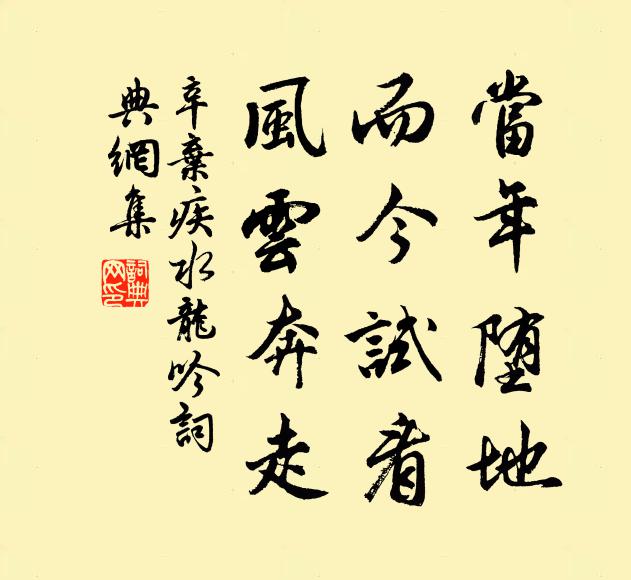 當年堕地
而今試看
風雲奔走
辛棄疾水龍吟詞
典網集
詞典
网印